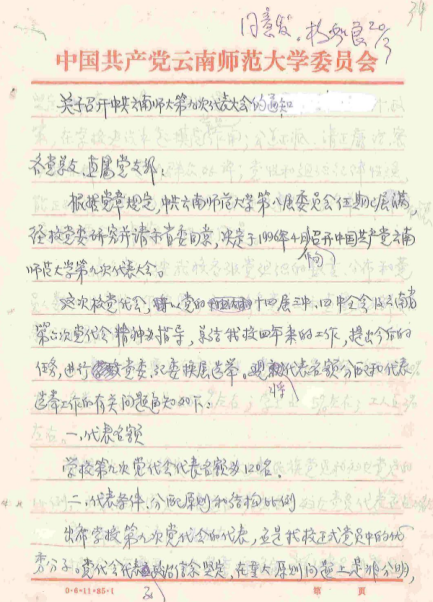 同意发。 20/3
34
中国共产党云南师范大学委员会
关于召开中共云南师大第九次代表大会的通知
各党总支、直属党支部：
根据党章规定，中共云南师范大学第八届委员会任期已届满，
经校党委研究并请示省委同意，决定于1996年十月召开中国共产党云南
师范大学第九次代表大会。
这次校党代会，将以党的十四届三中、四中全会及云南省
第六次党代会精神为指导，总结我校四年来的工作，提出今后的
任务，进行党委、纪委换届选举。现将代表名额分配和代表
选举工作的有关问题通知如下：
一、代表名额
学校第九次党代会代表名额为120名。
二、代表条件、分配原则和结构比例
出席学校第九次党代会的代表，应是我校正式党员中的优
秀分子。党代会代表 信念坚定，在重大原则问题上是非分明，
0·6·11·85·1
第 页